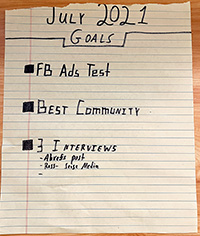 JULY 2021
GOALS
FB ADS TEST
BEST COMMUNITY
3 INTERVIEWS
- Ahrefs post
- Ross- Seise Media
-